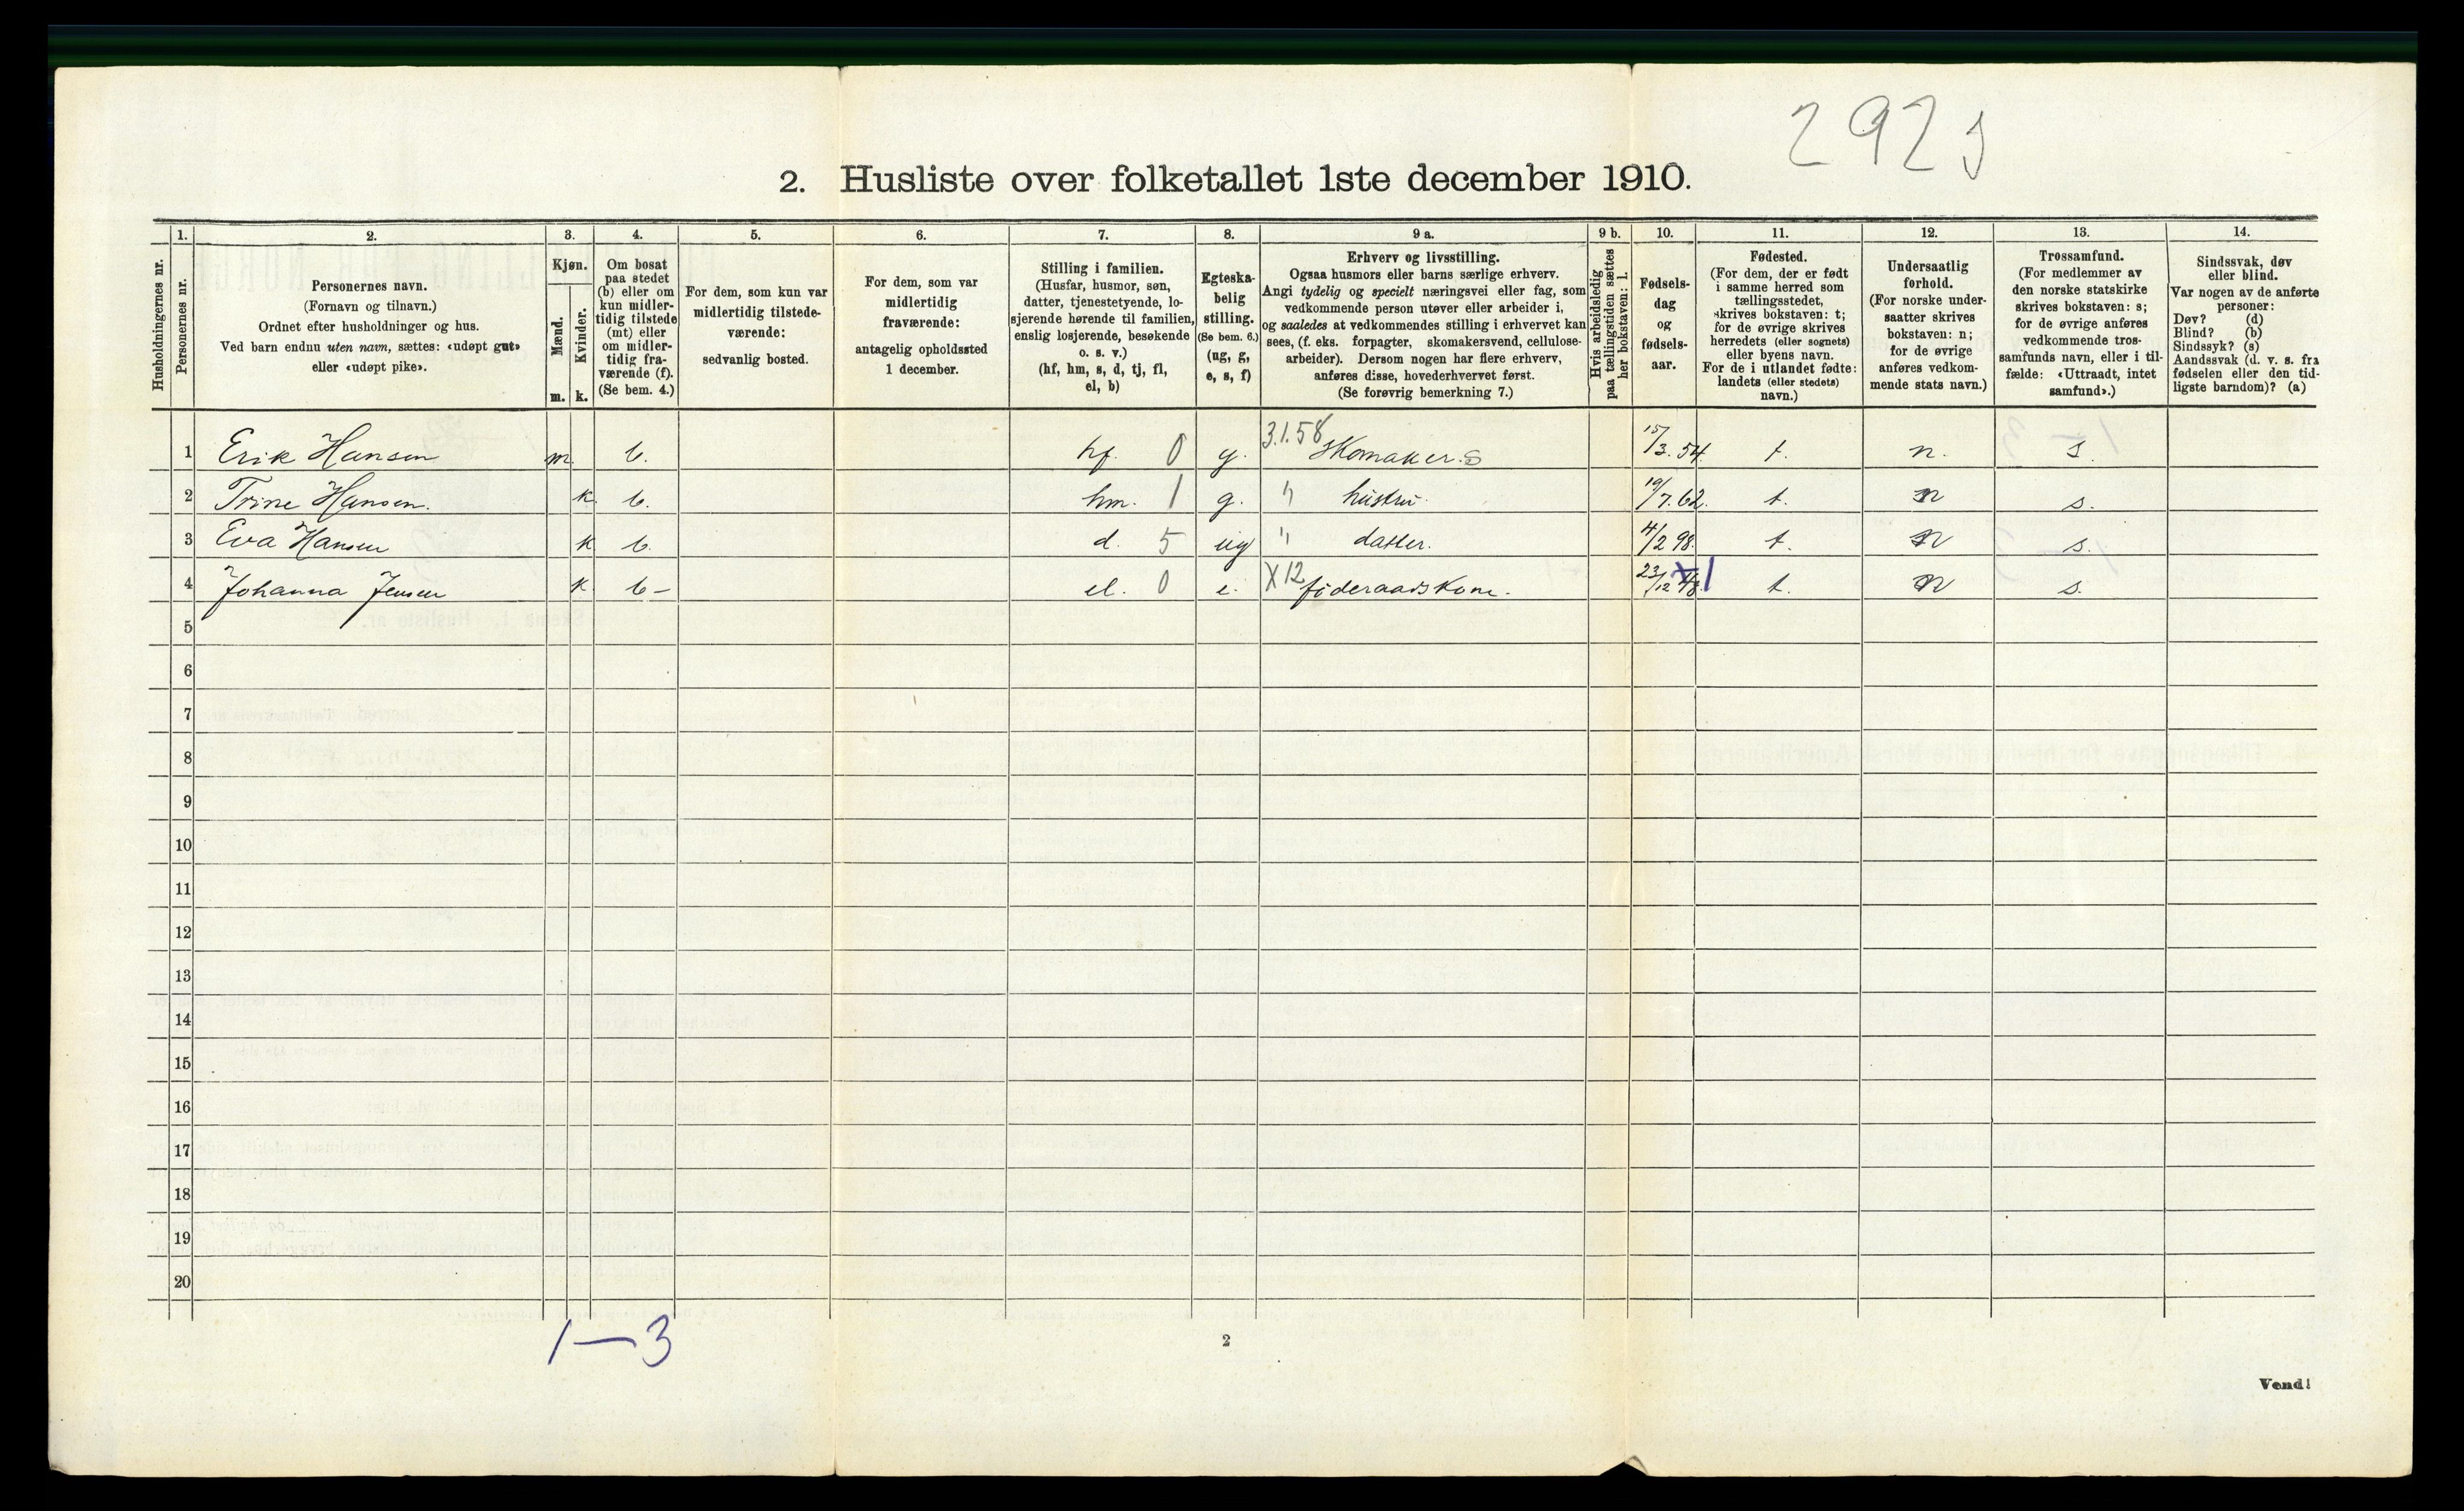 2925
2. Husliste over folketallet 1ste december 1910.
Husholdningernes nr.
1.
Personernes nr.
2.
Personernes navn.
(Fornavn og tilnavn.)
Ordnet efter husholdninger og hus.
Ved barn endnu uten navn, sættes: «udøpt gut»
eller «udøpt pike».
3.
Kjøn.
Mænd.
Kvinder.
m. k.
4.
Om bosat
paa stedet
(b) eller om
kun midler-
tidig tilstede
(mt) eller
om midler-
tidig fra-
værende (f).
(Se bem. 4.)
5.
For dem, som kun var
midlertidig tilstede-
værende:
sedvanlig bosted.
6.
For dem, som var
midlertidig
fraværende:
antagelig opholdssted
1 december.
7.
Stilling i familien.
(Husfar, husmor, søn,
datter, tjenestetyende, lo-
sjerende hørende til familien,
enslig losjerende, besøkende
o. s. v.)
(hf, hm, s, d, tj, fl,
el, b)
8.
Egteska-
belig
stilling.
(Se bem. 6.)
(ug, g,
e, s, f)
9 a.
Erhverv og livsstilling.
Ogsaa husmors eller barns særlige erhverv.
Angi tydelig og specielt næringsvei eller fag, som
vedkommende person utøver eller arbeider i,
og saaledes at vedkommendes stilling i erhvervet kan
sees, (f. eks. forpagter, skomakersvend, cellulose-
arbeider). Dersom nogen har flere erhverv,
anføres disse, hovederhvervet først.
(Se forøvrig bemerkning 7.)
9 b.
Hvis arbeidsledig
paa tællingstiden sættes
her bokstaven: l.
10.
Fødsels-
dag
og
fødsels-
aar.
11.
Fødested.
(For dem, der er født
i samme herred som
tællingsstedet,
skrives bokstaven: t;
for de øvrige skrives
herredets (eller sognets)
eller byens navn.
For de i utlandet fødte:
landets (eller stedets)
navn.)
12.
Undersaatlig
forhold.
(For norske under-
saatter skrives
bokstaven: n;
for de øvrige
anføres vedkom-
mende stats navn.)
13.
Trossamfund.
(For medlemmer av
den norske statskirke
skrives bokstaven: s;
for de øvrige anføres
vedkommende tros-
samfunds navn, eller i til-
fælde: «Uttraadt, intet
samfund».)
14.
Sindssvak, døv
eller blind.
Var nogen av de anførte
personer:
Døv? (d)
Blind? (b)
Sindssyk? (s)
Aandssvak (d. v. s. fra
fødselen eller den tid-
ligste barndom)? (a)
1 Erik Hansen m. b. hf. 0 g. 3.1.58 Skomaker. S 15/3.54. t. n. s.
2 Trine Hansen. k. b. hm. 1 g. " hustru. 19/7.62. t. n s.
3 Eva Hansen k b. d. 5 ug " datter. 4/2 98. t. n s.
4 Johanna Jensen k b- el. 0 e. X12 føderaadskone. 23/12 t. n s.
5
6
7
8
9
10
11
12
13
14
15
16
17
18
19
20
1-3
2
Vend!